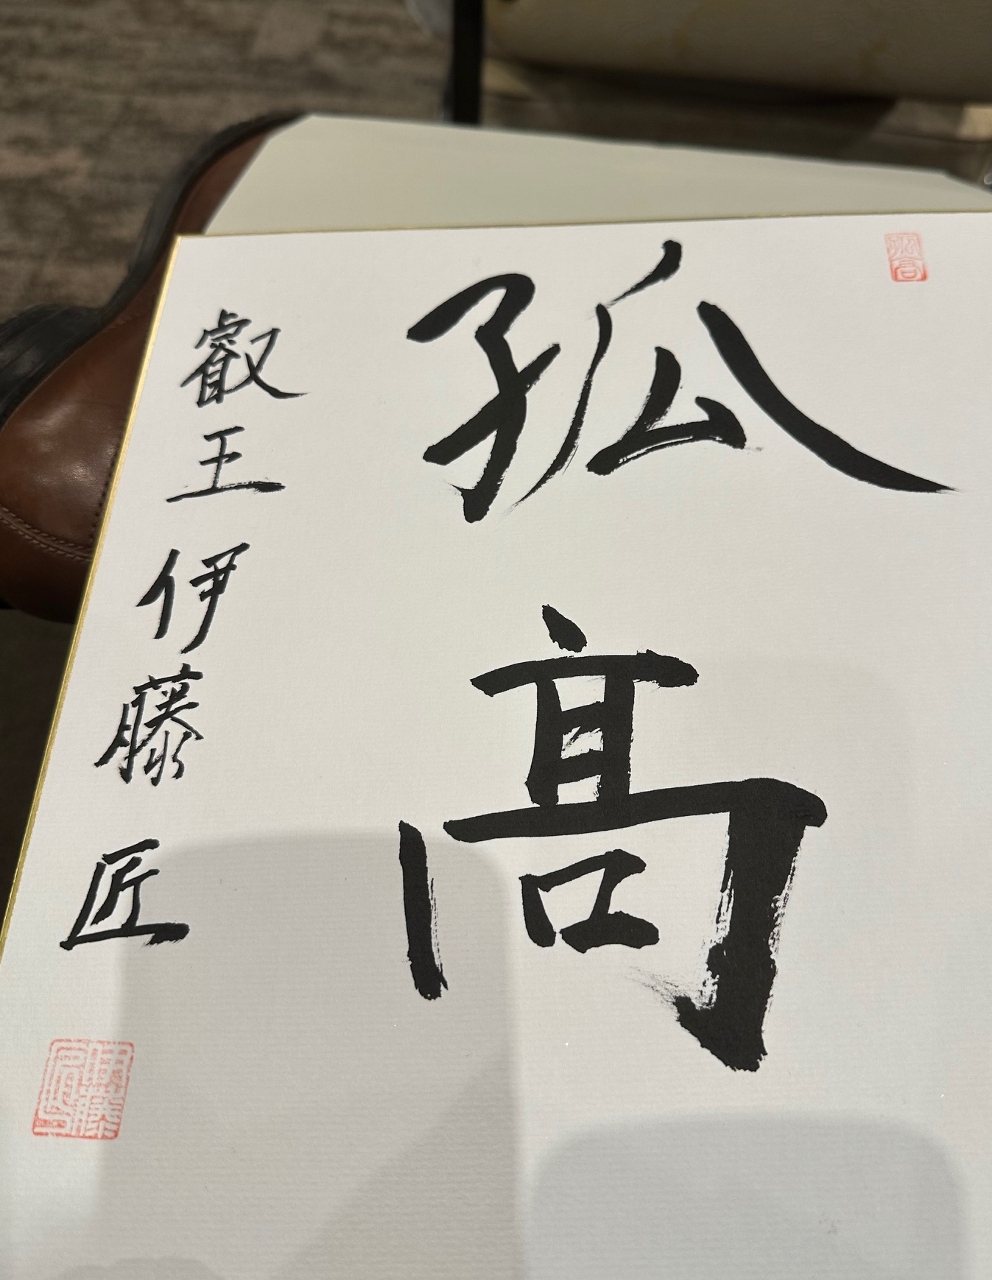 孤高
叡王 伊藤 匠
孤高
伊藤匠